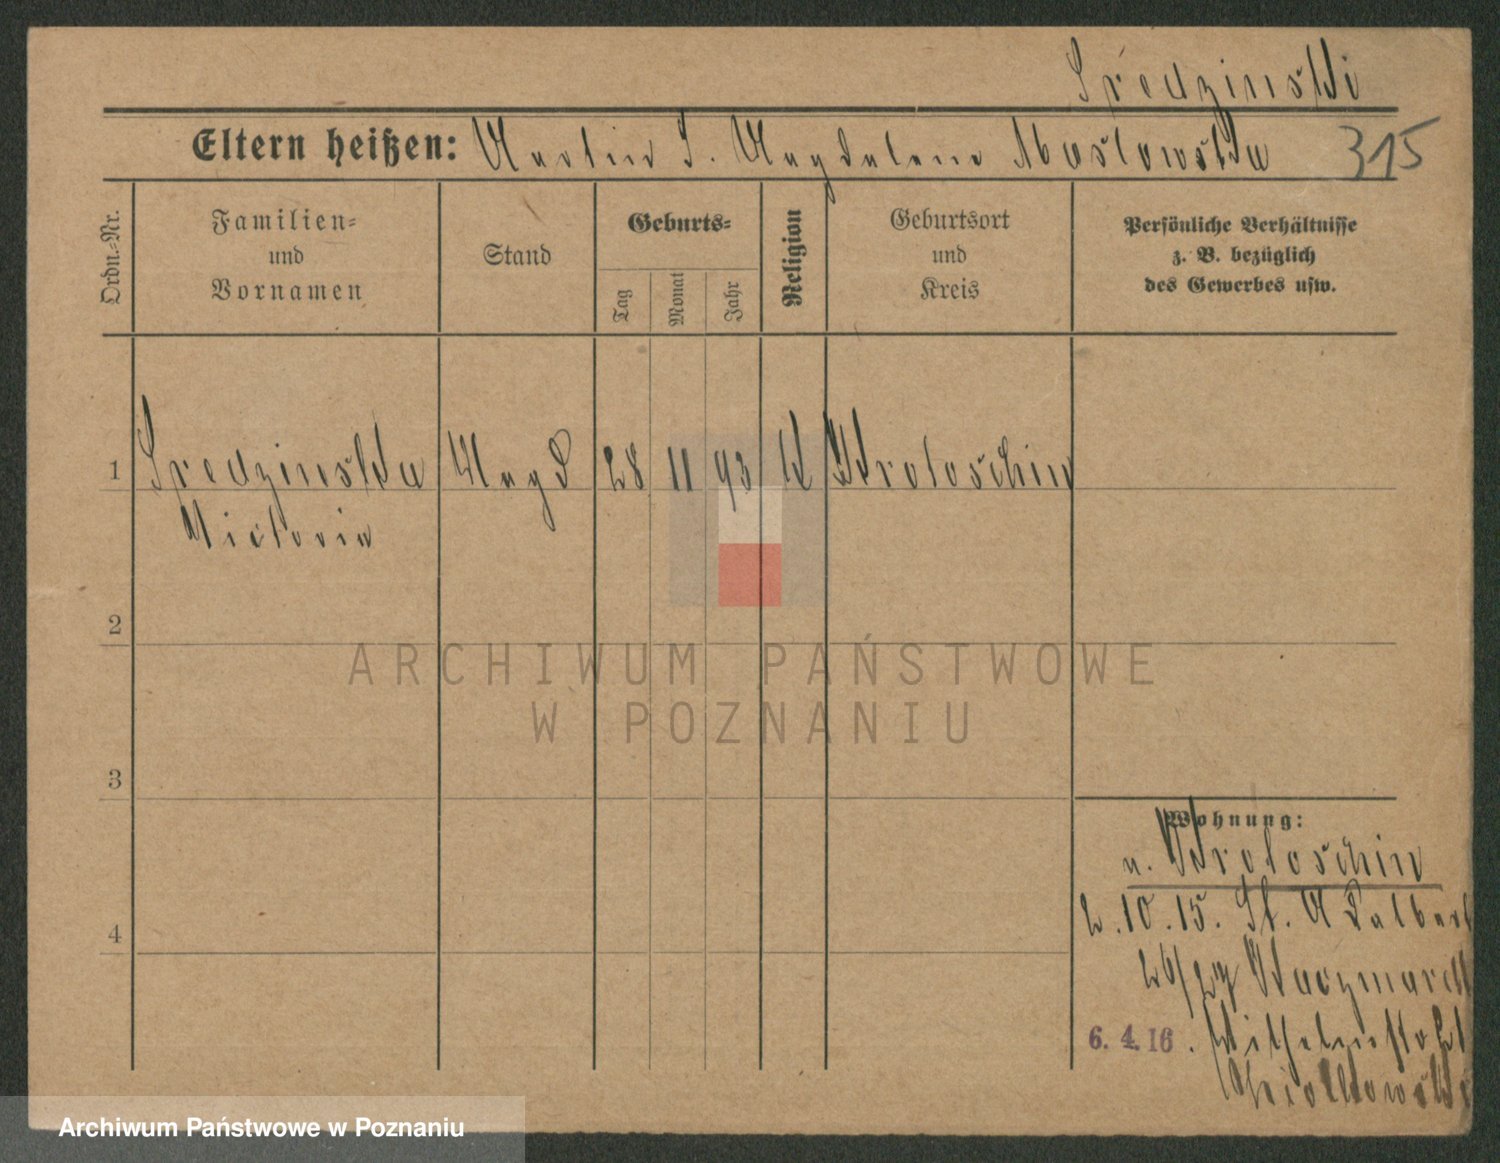 Sredzinski
Eltern heißen: Martin S. Magdalena Maslowska 315
Ordn.-Nr.
Familien-
und
Vornamen
Stand
Geburts-
Tag
Monat
Jahr
Religion
Geburtsort
und
Kreis
Persönliche Verhältnisse
z. B. bezüglich
des Gewerbes usw.
1 Sredzinska Magd 28 11 93 K Krotoschin
Victoria
2
3
4
Wohnung:
n. Krotoschin
2.10.15. St. Adalbert
26/27 Kaczmarek
6. 4. 16. Wilhelmstr 21
Ziolkowski
ARCHIWUM PAŃSTWOWE
W POZNANIU
Archiwum Państwowe w Poznaniu